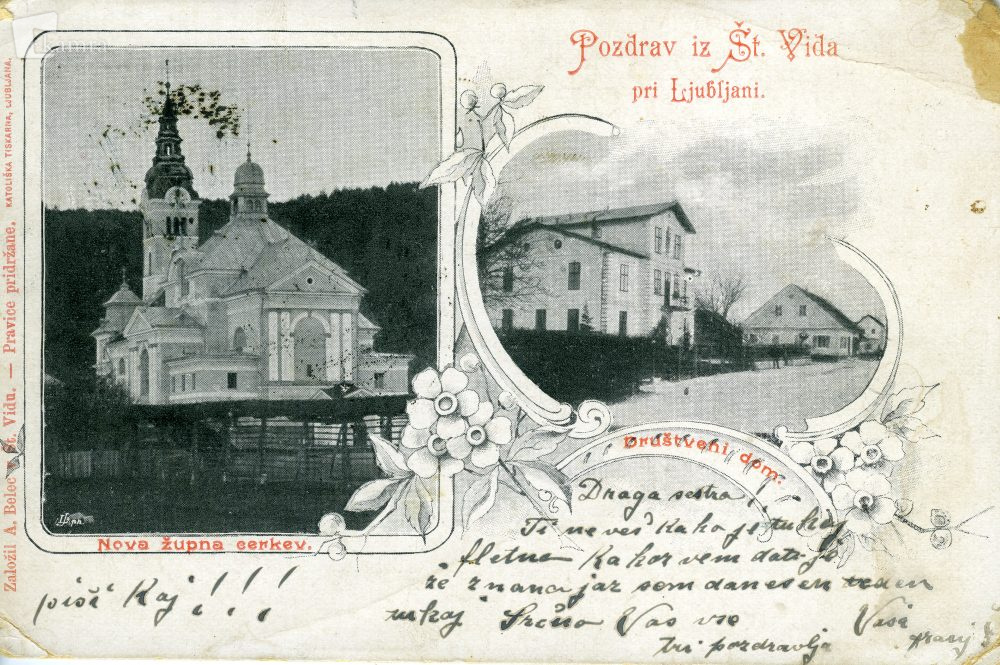 Pozdrav iz Št. Vida
pri Ljubljani.
Založil A. Belec v Št. Vidu. — Pravice pridržane.
KATOLIŠKA TISKARNA, LJUBLJANA.
Nova župna cerkev.
Društveni dom.
Draga sestra
Ti ne veš kako je tukaj
fletna kakor vem da ti je
že znana jaz sem danes en teden
tukaj Srčno Vas vse
pozdravlja
piši kaj!!!